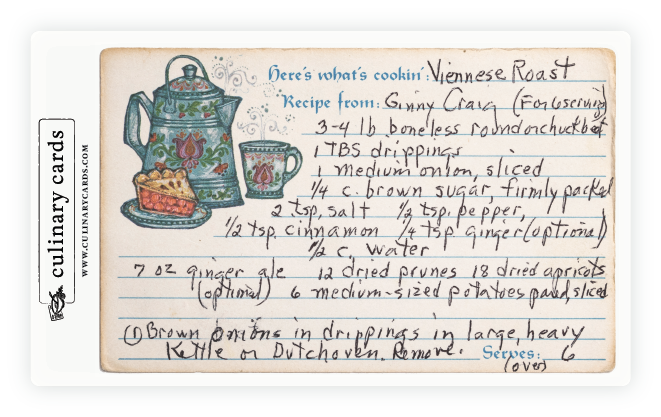 culinary cards
WWW.CULINARYCARDS.COM
Here's what's cookin': Viennese Roast
Recipe from: Ginny Craig (For 6 serving)
3-4 lb boneless round or chuck beef
1 TBS drippings
1 medium onion, sliced
1/4 c. brown sugar, firmly packed
2 tsp, salt 1/2 tsp. pepper,
1/2 tsp. cinnamon 1/4 tsp ginger (optional)
1/2 c. water
7 oz ginger ale 12 dried prunes 18 dried apricots
(optional) 6 medium-sized potatoes pared, sliced
① Brown onions in drippings in large, heavy
Kettle or Dutch oven. Remove. Serves: 6
(over)